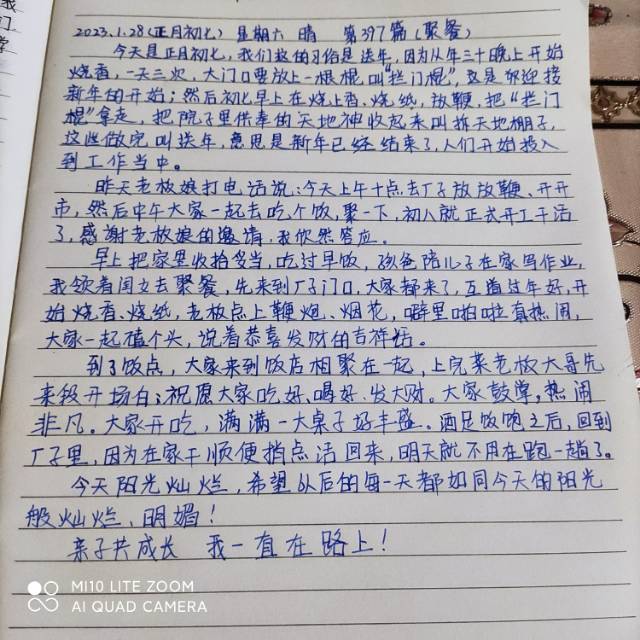 2023.1.28(正月初七) 星期六 晴 第397篇(聚餐)
今天是正月初七,我们这的习俗是送年,因为从年三十晚上开始
烧香,一天三次,大门口要放上一根棍叫“拦门棍”,这是你迎接
新年的开始;然后初七早上在烧上香、烧纸,放鞭,把“拦门
棍”拿走,把院子里供奉的天地神收起来叫拆天地棚子,
这些做完叫送年,意思是新年已经结束了,人们开始投入
到工作当中。
昨天老板娘打电话说:今天上午十点去厂子放放鞭、开开
市,然后中午大家一起去吃个饭,聚一下,初八就正式开工干活
了,感谢老板娘的邀请,我欣然答应。
早上把家里收拾妥当,吃过早饭,孩爸陪儿子在家写作业,
我领着闺女去聚餐,先来到厂子门口,大家都来了,互道过年好,开
始烧香、烧纸,老板点上鞭炮、烟花,噼里啪啦真热闹,
大家一起磕个头,说着恭喜发财的吉祥话。
到了饭点,大家来到饭店相聚在一起,上完菜老板大哥先
来段开场白;祝愿大家吃好、喝好、发大财。大家鼓掌,热闹
非凡。大家开吃,满满一大桌子好丰盛。酒足饭饱之后,回到
厂子里,因为在家干顺便捎点活回来,明天就不用在跑一趟了。
今天阳光灿烂,希望以后的每一天都如同今天的阳光
般灿烂、明媚!
亲子共成长 我一直在路上!
MI 10 LITE ZOOM
AI QUAD CAMERA